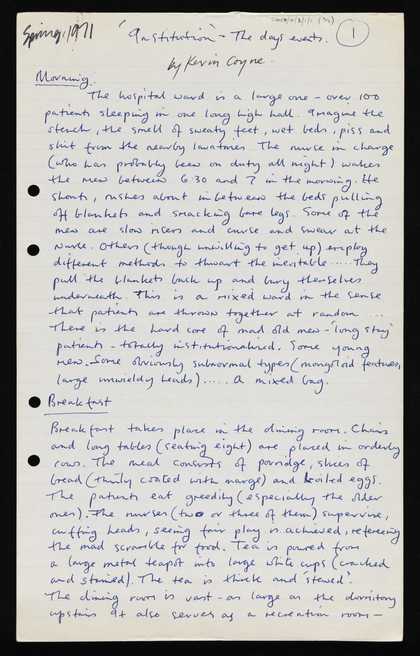 Spring, 1971
'Institution' - The days events. 1
by Kevin Coyne.
Morning.
The hospital ward is a large one - over 100
patients sleeping in one long high hall. Imagine the
stench, the smell of sweaty feet, wet beds, piss and
shit from the nearby lavatories. The nurse in charge
(who has probably been on duty all night) wakes
the men between 6.30 and 7 in the morning. He
shouts, rushes about in between the beds pulling
off blankets and smacking bare legs. Some of the
men are slow risers and curse and swear at the
nurse. Others (though unwilling to get up) employ
different methods to thwart the inevitable ..... They
pull the blankets back up and bury themselves
underneath. This is a mixed ward in the sense
that patients are thrown together at random ....
There is the hard core of mad old men - 'long stay'
patients - totally institutionalised. Some young
men. Some obviously subnormal types (mongoloid features,
large unwieldy heads) ..... A mixed bag.
Breakfast
Breakfast takes place in the dining room. Chairs
and long tables (seating eight) are placed in orderly
rows. The meal consists of porridge, slices of
bread (thinly coated with marge) and boiled eggs.
The patients eat greedily (especially the older
ones). The nurses (two or three of them) supervise,
cuffing heads, seeing fair play is achieved, refereeing
the mad scramble for food. Tea is poured from
a large metal teapot into large white cups (cracked
and stained). The tea is thick and 'stewed'.
The dining room is vast - as large as the dormitory
upstairs. It also serves as a recreation room -